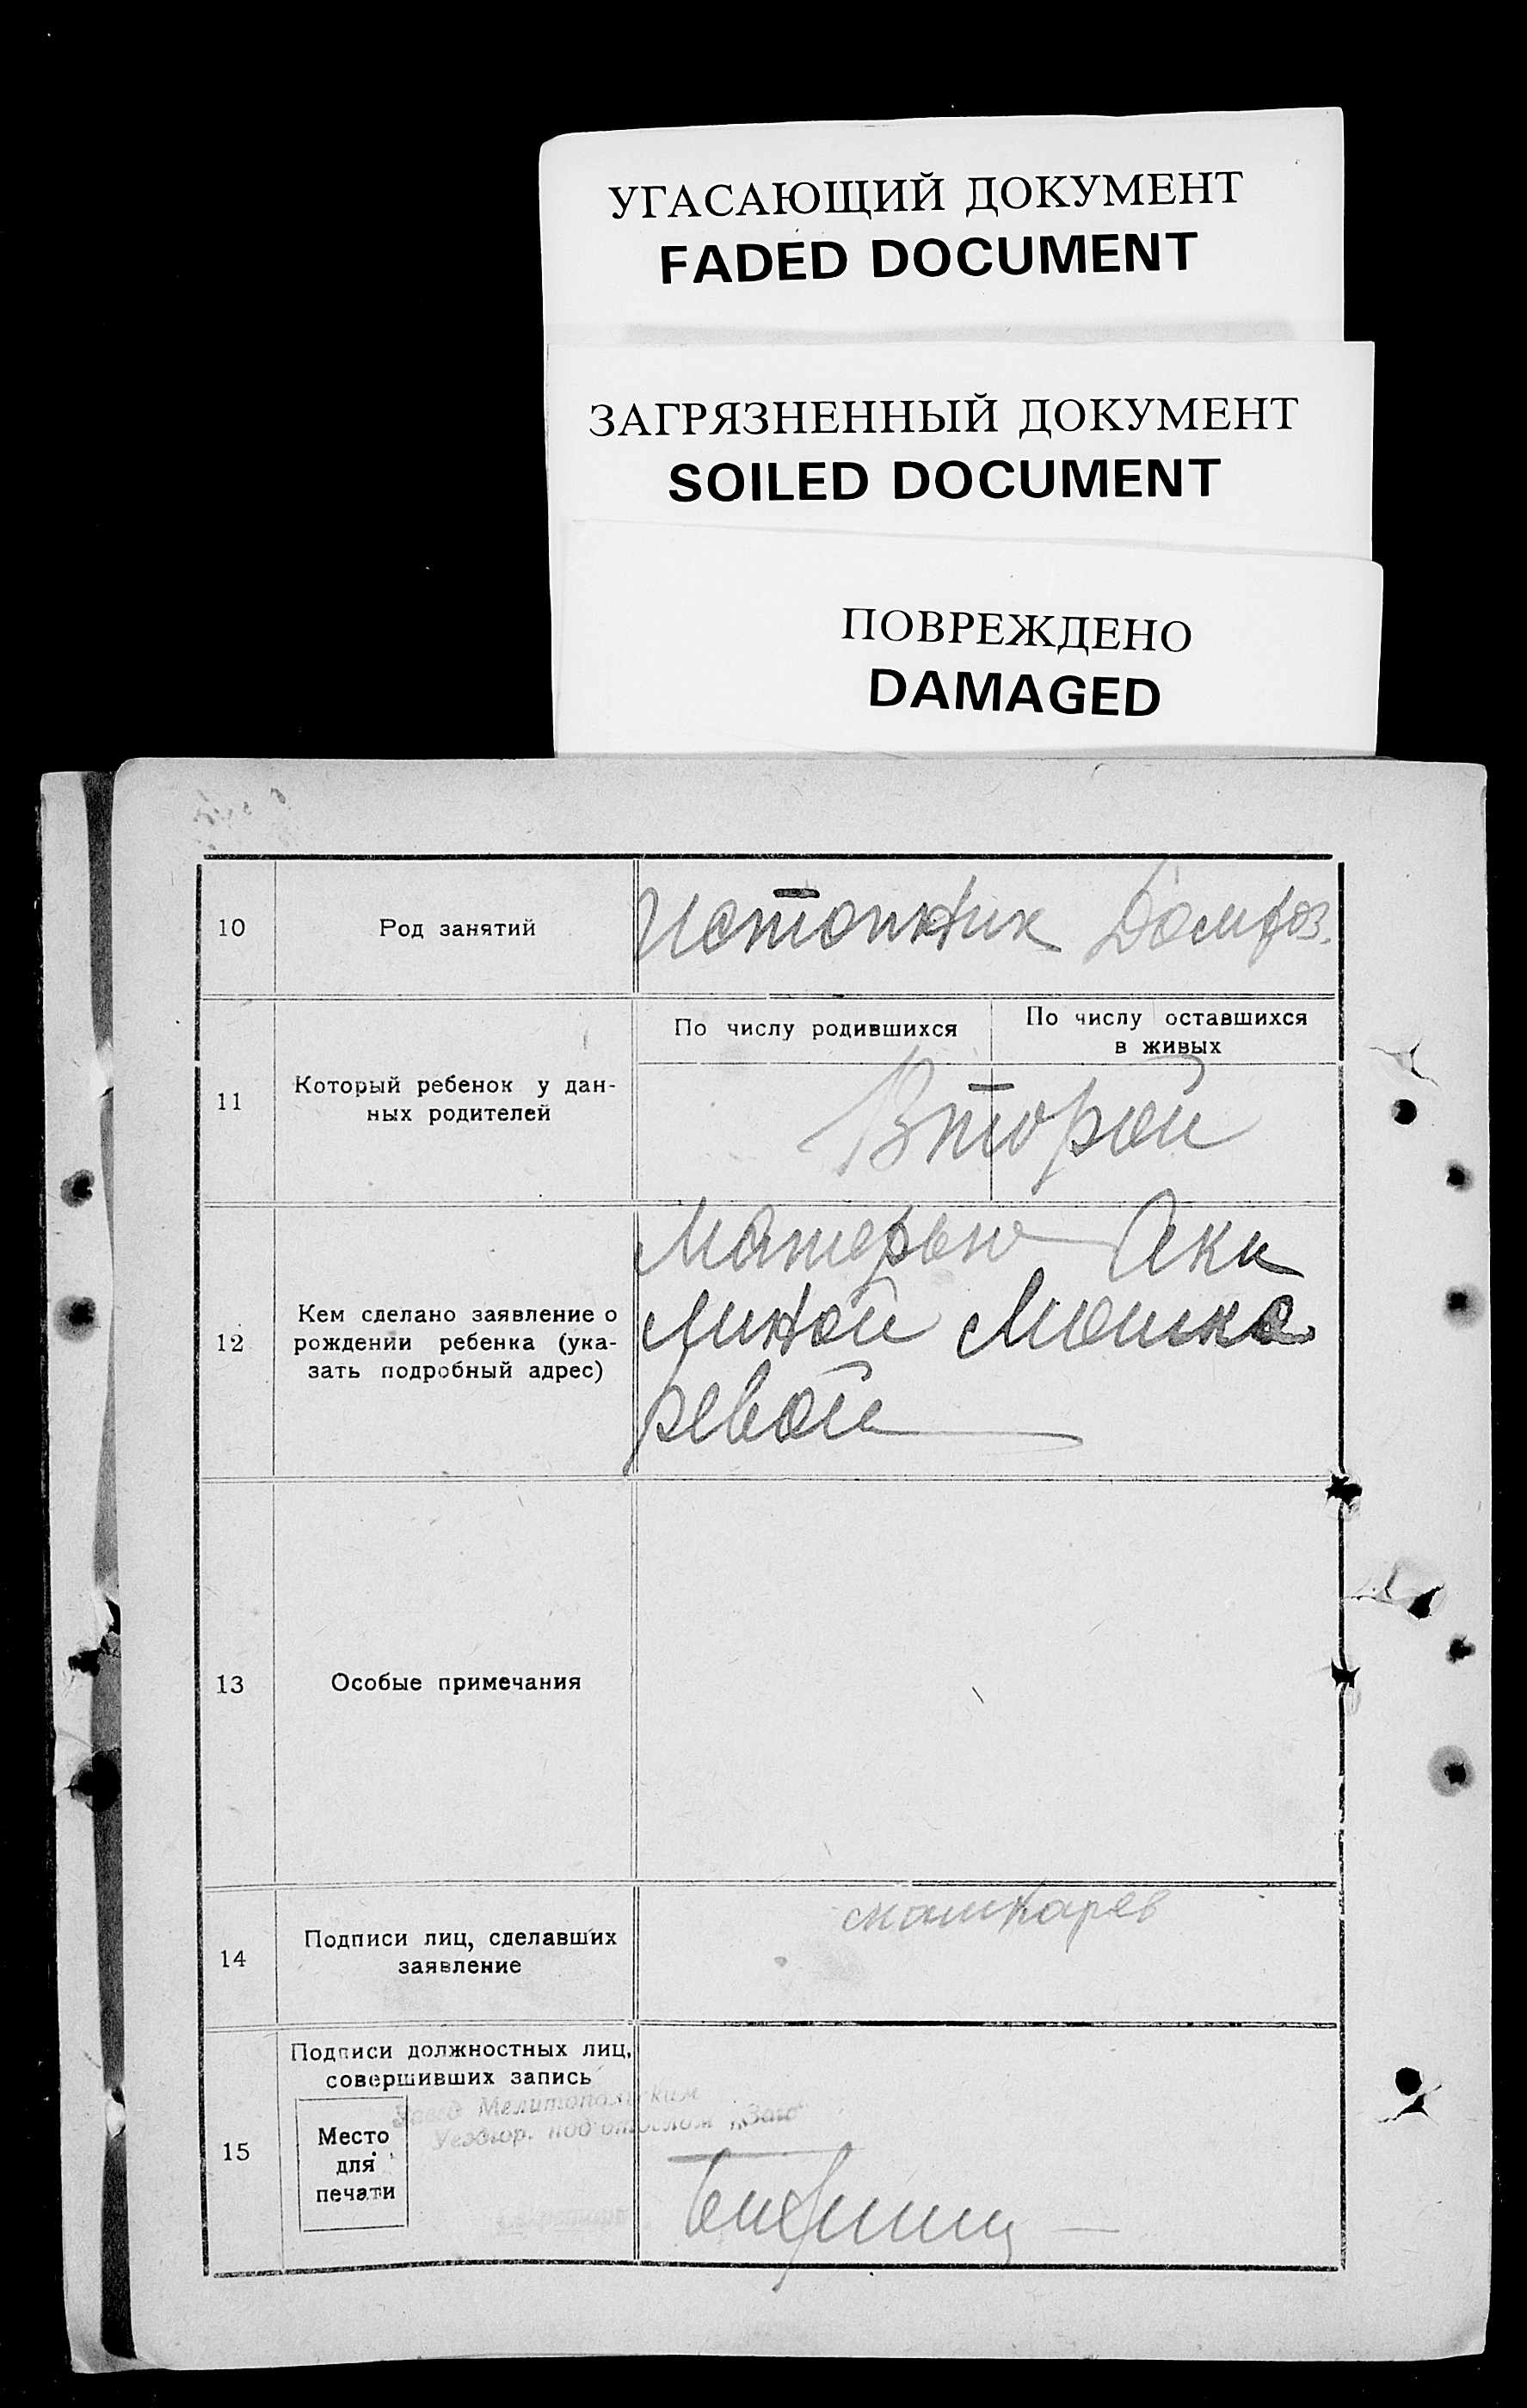 УГАСАЮЩИЙ ДОКУМЕНТ
FADED DOCUMENT
ЗАГРЯЗНЕННЫЙ ДОКУМЕНТ
SOILED DOCUMENT
ПОВРЕЖДЕНО
DAMAGED
10
Род занятий
Истопник
11
Который ребенок у дан-
ных родителей
По числу родившихся
По числу оставшихся
в живых
Второй
12
Кем сделано заявление о
рождении ребенка (ука-
зать подробный адрес)
Матерью Аки
линой Мошка
ревой
13
Особые примечания
14
Подписи лиц, сделавших
заявление
Машкарев
15
Подписи должностных лиц,
совершивших запись
Место
для
печати
Завед Мелитопольским
Уездгор. подотделом „Загс"